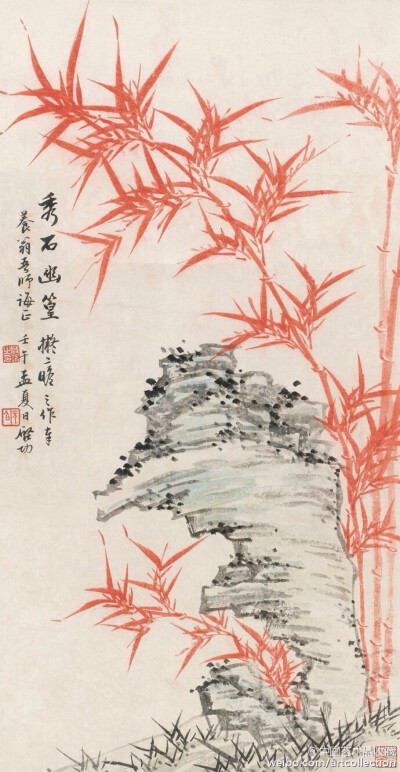 秀石幽篁 擬二瞻之作奉
養翁吾師誨正 壬午孟夏日 啓功
weibo.com/artcollection